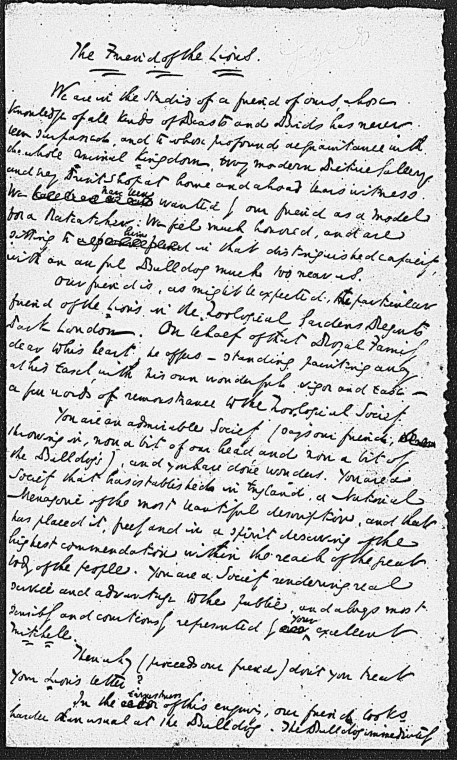 The Friend of the Lions.
We are in the Studio of a friend of ours, whose
knowledge of all kinds of Beasts and Birds has never
been surpassed, and to whose profound acquaintance with
the whole Animal Kingdom, every modern Picture Gallery
and every Print Shop at home and abroad bears witness.
We have been wanted by our friend as a model
for a Ratcatcher. We feel much honored, and are
sitting to him in that distinguished capacity,
with an awful Bulldog much too near us.
Our friend is, as might be expected, the particular
friend of the Lions in the Zoological Gardens, Regents
Park London. On behalf of that Royal Family
dear to his heart, he offers – standing painting away
at his Easel, with his own wonderful vigor and ease –
a few words of remonstrance to the Zoological Society.
You are an admirable Society (says our friend,
throwing in, now a bit of our head and now a bit of
the Bulldog's), and you have done wonders. You are a
Society that has established in England, a National
Menagerie of the most beautiful description, and that
has placed it, freely and in a spirit deserving of the
highest commendation within the reach of the great
body of the people. You are a Society rendering real
service and advantage to the public, and always most
sensibly and courteously represented by your excellent
Mitchell.
Then why (proceeds our friend) don't you treat
your Lions better?
In the earnestness of this enquiry, our friend looks
harder than usual at the Bulldog. The Bulldog immediately